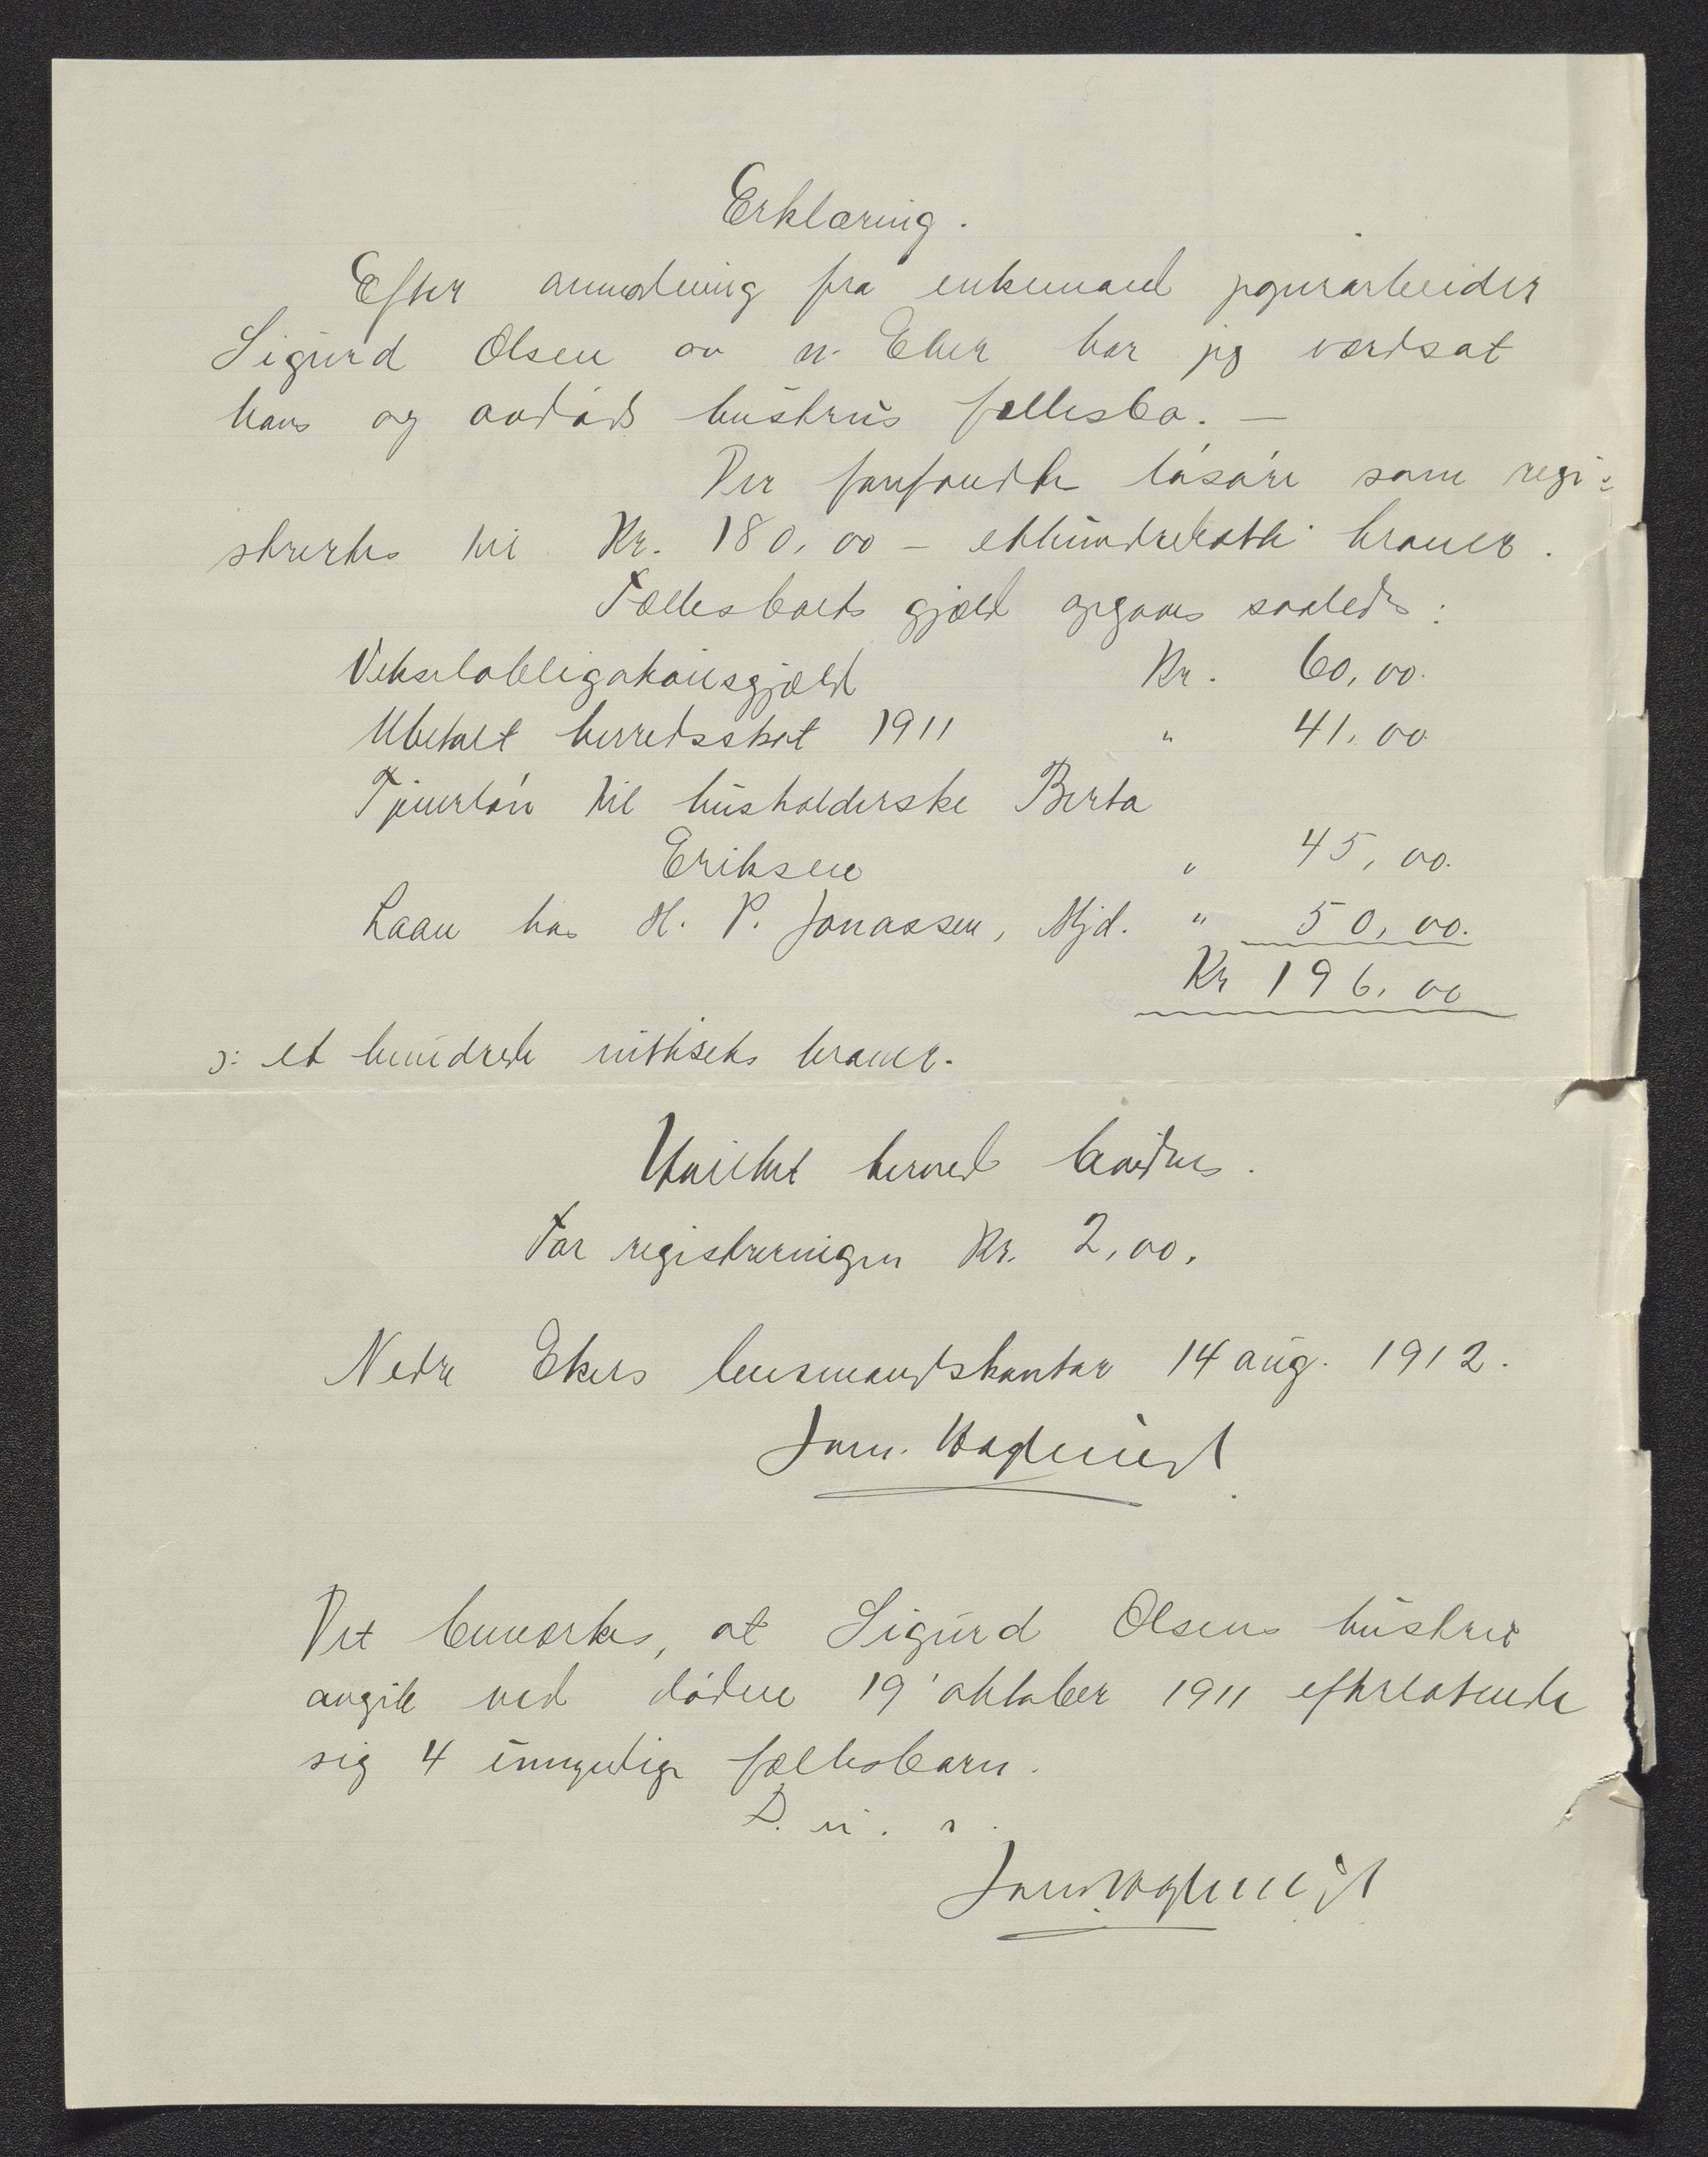 Erklæring.
Efter anmodning fra enkemand papirarbeider
Sigurd Olsen av n. Eker har jeg værdsat
hans og avdøde hustrus fællesbo. —
Der forefandtes løsøre som regi-
streres til Kr. 180,00 — ethundredeotti kroner.
Fællesboets gjæld opgaves saaledes:
Vekselobligationsgjæld Kr. 60,00.
Ubetalt herredsskat 1911 " 41,00
Tjenerløn til husholderske Berta
Eriksen " 45,00.
Laan hos H. P. Jonassen, Mjd. " 50,00.
Kr 196,00
ɔ: et hundrede nittiseks kroner.
Uskiftet herved bevidnes.
For registreringen Kr. 2,00.
Nedre Ekers lensmandskontor 14 aug. 1912.
Det bemerkes, at Sigurd Olsens hustru
avgik ved døden 19' oktober 1911 efterlatende
sig 4 umyndige fællesbarn.
D. u. s.